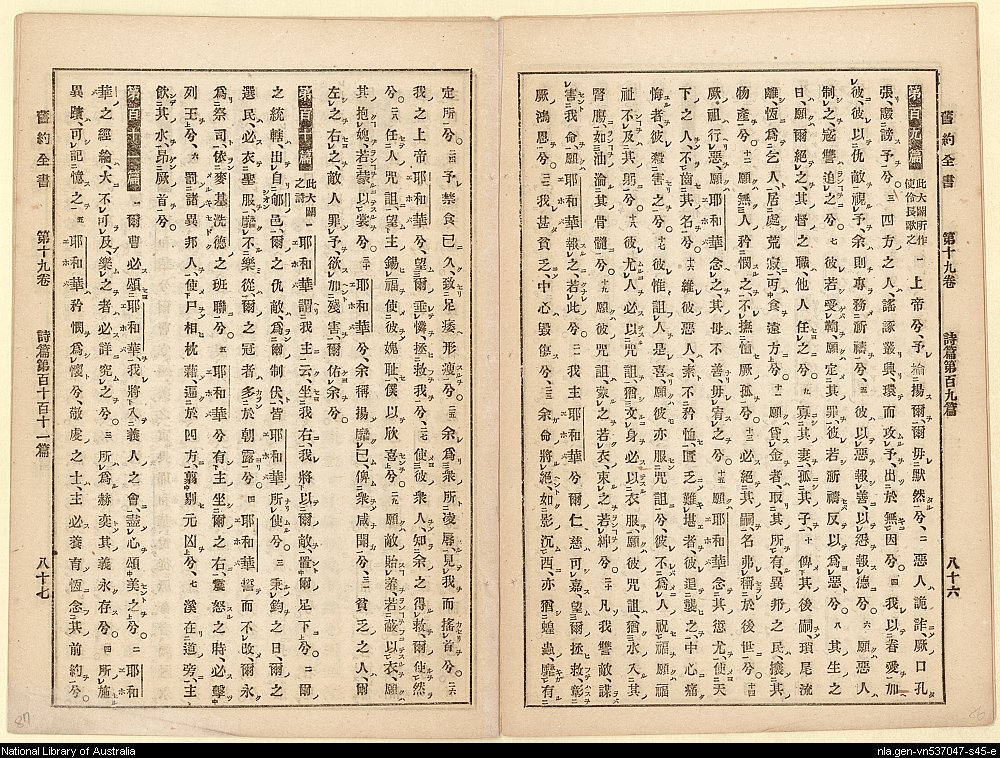 舊約全書 第十九卷 詩篇第百九篇 八十六
第百九篇 此大闢所作使伶長歌之 一 上帝兮予揄揚爾、爾毋默然兮、二 惡人詭詐、厥口孔
張、讒謗予兮。三 四方之人、謠諑叢興、環而攻予、出於無因兮。四 我以眷愛加
彼、彼以仇敵視予、余則專務祈禱兮。五 彼以惡報善、以怨報德兮。六 願惡人
制之、惑警迫之兮。七 彼若受鞫、願定其罪、彼若祈禱、反以爲惡兮。八 其生之
日、願爾絕之、其督之職、他人任之兮。九 寡其妻、孤其子、十 俾其後嗣瑣尾流
離、恆爲乞人、居處荒寂、丐食遠方兮。十一 願貸金者、取其所有、異邦之民、攘其
物產兮。十二 願無人矜憫之、不撫恤厥孤兮。十三 必絕其嗣、名弗稱於後世兮。十四
厥祖行惡、願耶和華念之、其母不善、毋宥之兮。十五 願耶和華念其愆尤、使天
下之人、不齒其名兮。十六 維彼惡人、素不矜恤、匱乏難堪者、彼追襲之、中心痛
悔者、彼殺害之兮。十七 彼惟詛人是喜、願彼亦服咒詛兮、彼不爲人祝福、願福
祉不及其躬兮。十八 彼尤人必以咒詛、猶文身必以衣服、願彼咒詛、猶水入其
腎腸、如油淪其骨髓兮。十九 願彼咒詛、蒙之若衣、束之若紳兮。二十 凡我讐敵、謀
害我命、願耶和華報之若此兮。二一 我主耶和華兮、爾仁慈可嘉、望爾拯救、彰
厥鴻恩兮。二二 我甚貧乏、中心毀傷兮、二三 余命將絕、如影沉西、亦猶蝗蟲、靡有
定所兮。二四 予禁食已久、致足痿形瘦兮。二五 余爲衆所凌辱、見我而搖首兮。二六
我之上帝耶和華兮、望爾垂憐、拯救我兮、二七 使彼衆人、知余之得救、爾使然
兮。二八 任人咒詛、望主錫福、使彼媿恥、僕以欣喜兮。二九 願敵貽羞、若蔽以衣、願
其抱媿、若蒙以裳兮。三十 耶和華兮、余稱揚靡已、俾衆咸聞兮、三一 貧乏之人、爾
左之右之、敵人罪予、欲加殘害、爾佑余兮。
第百十篇 此大闢之詩 一 耶和華謂我主云、坐我右、我將以爾敵、置爾足下兮。二 爾
之統轄、出自郇邑、爾之仇敵、爾制伏、皆耶和華所使兮。三 秉鈞之日、爾之
選民、必衣聖服、靡不樂從、爾之冠者、多於朝露兮。四 耶和華誓而不改、爾永
爲祭司、依麥基洗德之班聯兮。五 耶和華兮、有主坐爾之右、震怒之時、必擊
列王兮、六 罰諸異邦人、使尸相枕藉、遍於四方、翦剔元凶兮、七 溪在道旁、主
飮其水、昂厥首兮。
第百十一篇 一 爾曹必頌耶和華、我將入義人之會、盡心頌美之兮。二 耶和
華之經綸、大不可及、樂之者必詳究之兮。三 所爲赫奕、其義永存兮。四 所施
異蹟、可記憶之、五 耶和華矜憫爲懷兮、敬虔之士、主必養育、恆念其前約兮。
舊約全書 第十九卷 詩篇第百十百十一篇 八十七
87
National Library of Australia
nla.gen-vn537047-s45-e